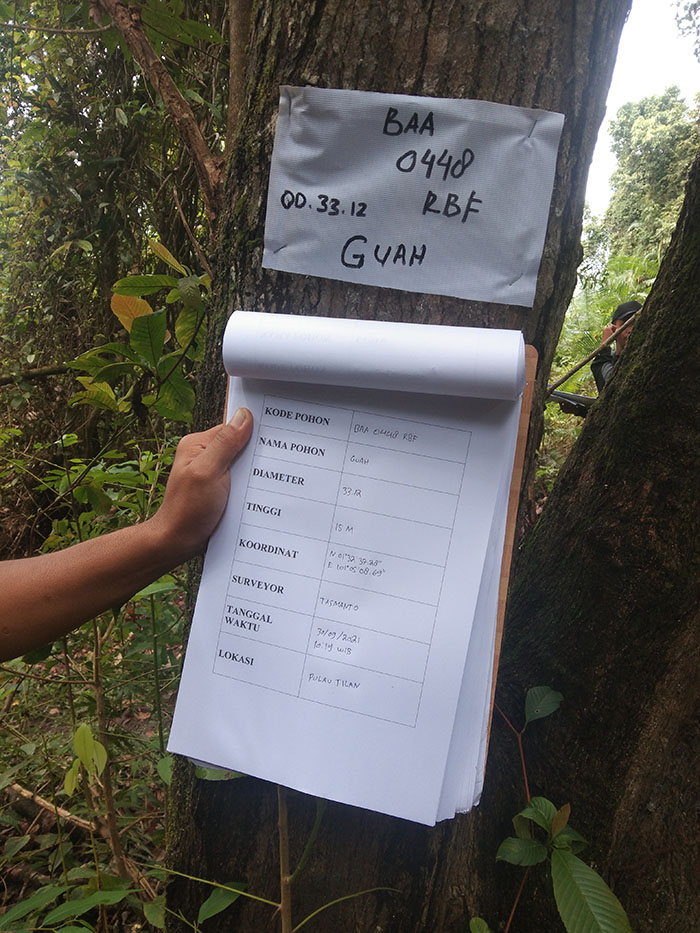 BAA
0448
QD.33.12 RBF
GUAH
KODE POHON BAA 0448 RBF
NAMA POHON GUAH
DIAMETER 33.12
TINGGI 15 M
KOORDINAT N 01°32'32.28"
E 101°05'08.69"
SURVEYOR TASMANTO
TANGGAL 30/09/2021
WAKTU 10:19 WIB
LOKASI PULAU TILAN